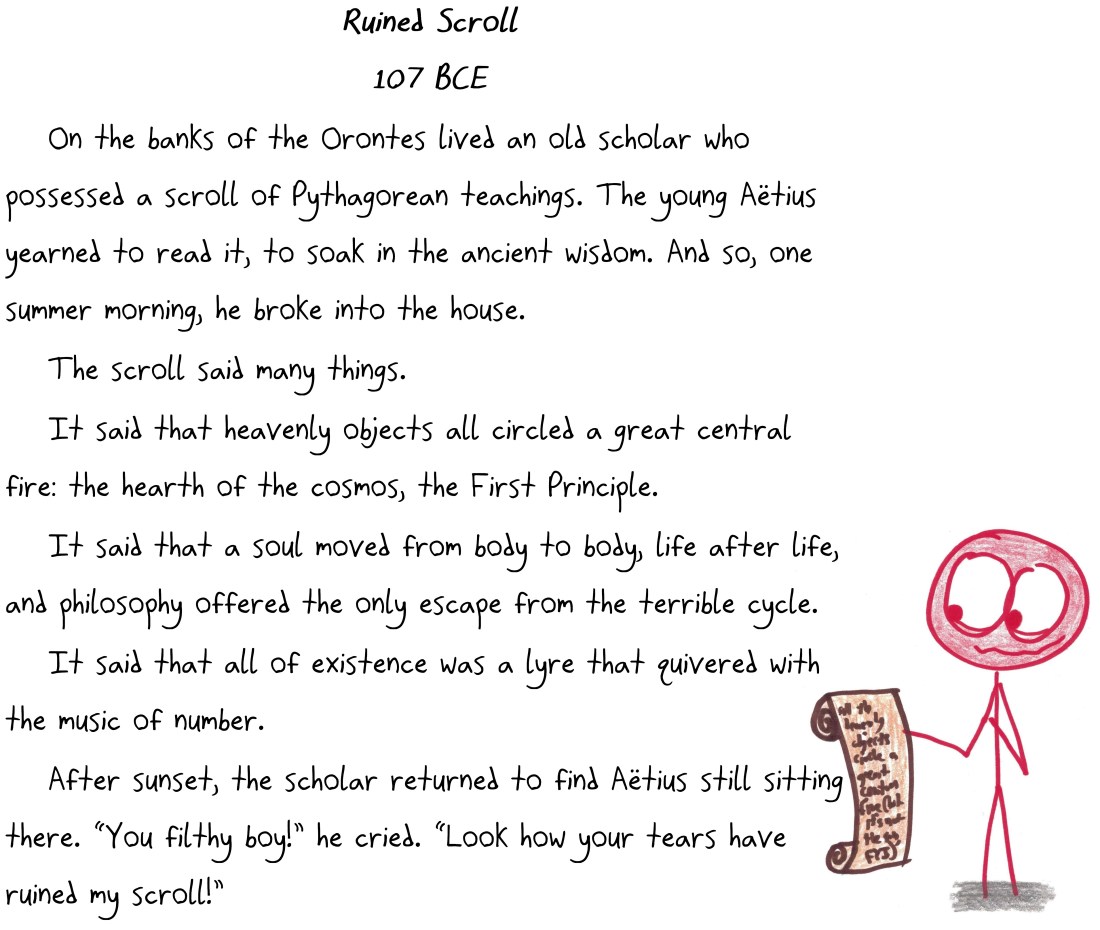 Ruined Scroll
107 BCE
On the banks of the Orontes lived an old scholar who
possessed a scroll of Pythagorean teachings. The young Aëtius
yearned to read it, to soak in the ancient wisdom. And so, one
summer morning, he broke into the house.
The scroll said many things.
It said that heavenly objects all circled a great central
fire: the hearth of the cosmos, the First Principle.
It said that a soul moved from body to body, life after life,
and philosophy offered the only escape from the terrible cycle.
It said that all of existence was a lyre that quivered with
the music of number.
After sunset, the scholar returned to find Aëtius still sitting
there. “You filthy boy!” he cried. “Look how your tears have
ruined my scroll!”
All the
heavenly
objects
circle a
great
central
fire (but
it's not
the
FYI)